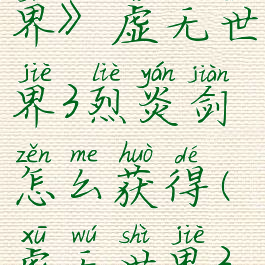 界》虚无世
jiè liè yán jiàn
界3烈炎剑
zěn me huò dé
怎么获得(
xū wú shì jiè
虚无世界3